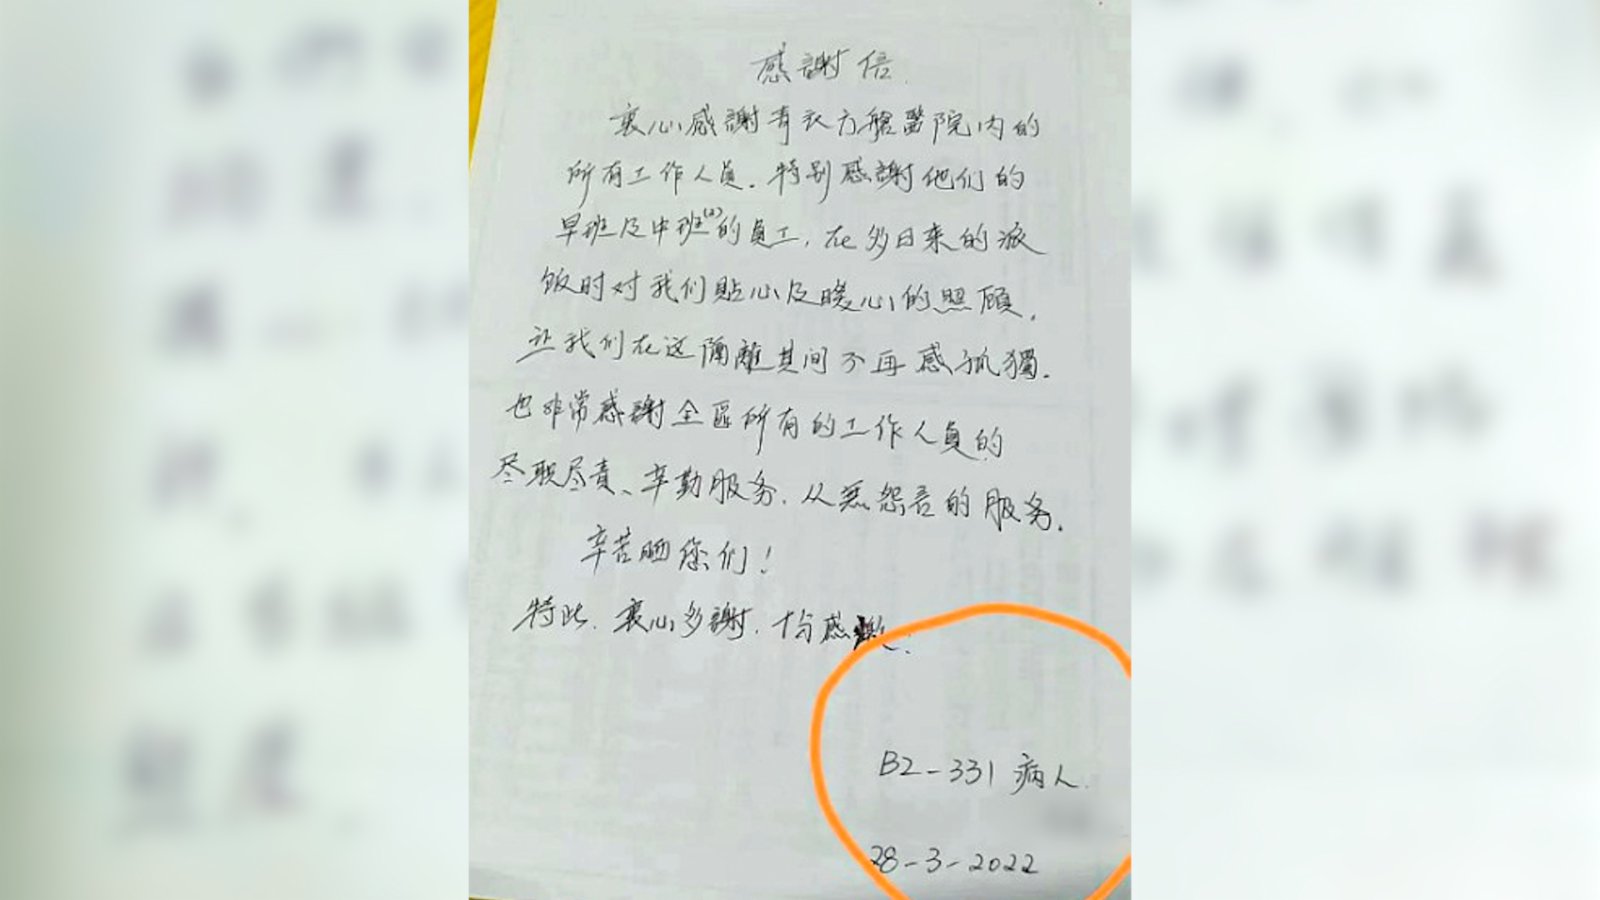 感謝信.
衷心感謝青衣方艙醫院内的
所有工作人員. 特别感謝他们的
早班及中班(2)的員工, 在多日来的派
饭时对我们貼心及暖心的照顾,
让我们在这隔離其间不再感孤獨.
也非常感謝全區所有的工作人員的
尽职尽責、辛勤服务. 从無怨言的服务.
辛苦晒您们!
特此. 衷心多謝. 十分感激.
B2-331 病人.
28-3-2022